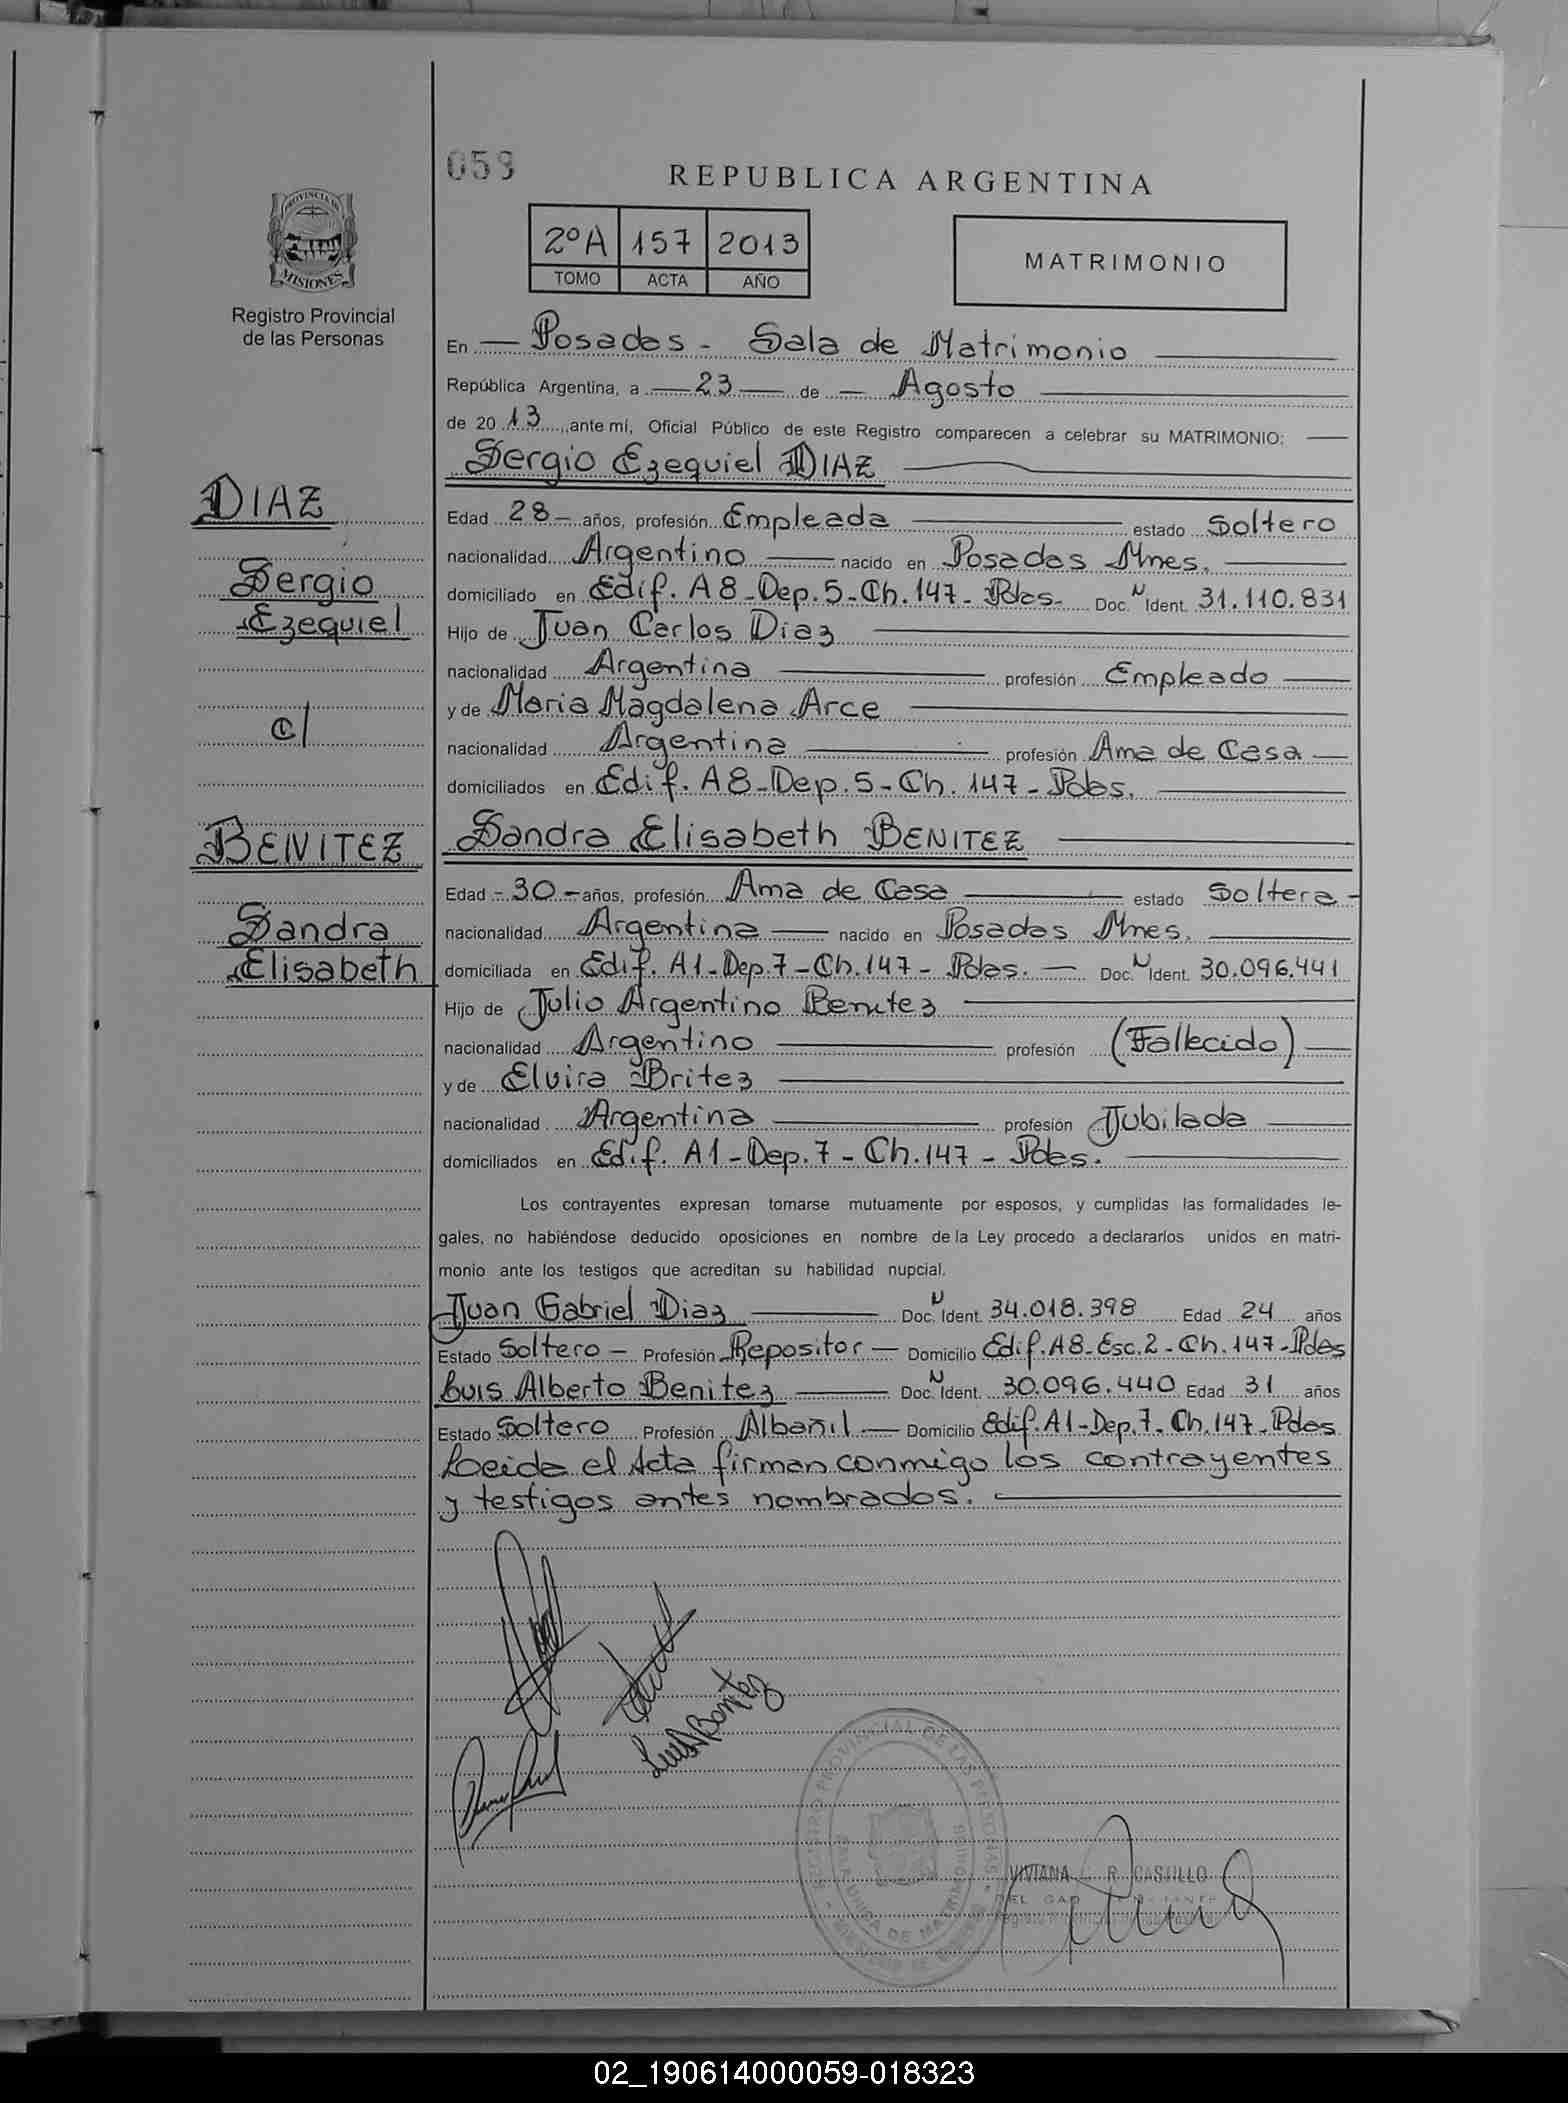 059
REPUBLICA ARGENTINA
PROVINCIA DE
MISIONES
Registro Provincial
de las Personas
2ºA 157 2013
TOMO ACTA AÑO
MATRIMONIO
En — Posadas - Sala de Matrimonio —
República Argentina, a — 23 — de — Agosto —
de 20 13 , ante mí, Oficial Público de este Registro comparecen a celebrar su MATRIMONIO: —
Sergio Ezequiel DIAZ —
DIAZ
Sergio
Ezequiel
c/
BENITEZ
Sandra
Elisabeth
Edad 28 - años, profesión Empleada — estado Soltero
nacionalidad Argentino — nacido en Posadas Mnes. —
domiciliado en Edif. A8-Dep.5-Ch.147- Pdas. Doc. N Ident. 31.110.831
Hijo de Juan Carlos Diaz —
nacionalidad Argentina — profesión Empleado —
y de Maria Magdalena Arce —
nacionalidad Argentina — profesión Ama de Casa —
domiciliados en Edif. A8-Dep.5-Ch.147- Pdas. —
Sandra Elisabeth BENITEZ —
Edad - 30 - años, profesión Ama de Casa — estado Soltera -
nacionalidad Argentina — nacido en Posadas Mnes. —
domiciliada en Edif. A1-Dep.7-Ch.147- Pdas. — Doc. N Ident. 30.096.441
Hijo de Julio Argentino Benitez —
nacionalidad Argentino — profesión (Fallecido) —
y de Elvira Britez —
nacionalidad Argentina — profesión Jubilada —
domiciliados en Edif. A1-Dep.7-Ch.147- Pdas. —
Los contrayentes expresan tomarse mutuamente por esposos, y cumplidas las formalidades le-
gales, no habiéndose deducido oposiciones en nombre de la Ley procedo a declararlos unidos en matri-
monio ante los testigos que acreditan su habilidad nupcial.
Juan Gabriel Diaz — Doc. N Ident. 34.018.398 Edad 24 años
Estado Soltero - Profesión Repositor — Domicilio Edif.A8-Esc.2-Ch.147-Pdas
Luis Alberto Benitez — Doc. N Ident. 30.096.440 Edad 31 años
Estado Soltero Profesión Albañil — Domicilio Edif.A1-Dep.7-Ch.147-Pdas
Leida el Acta firman conmigo los contrayentes
y testigos antes nombrados. —
Luis A Benitez
REGISTRO PROVINCIAL DE LAS PERSONAS
DE MATRIMONIOS
VIVIANA R. CASTILLO
02_190614000059-018323